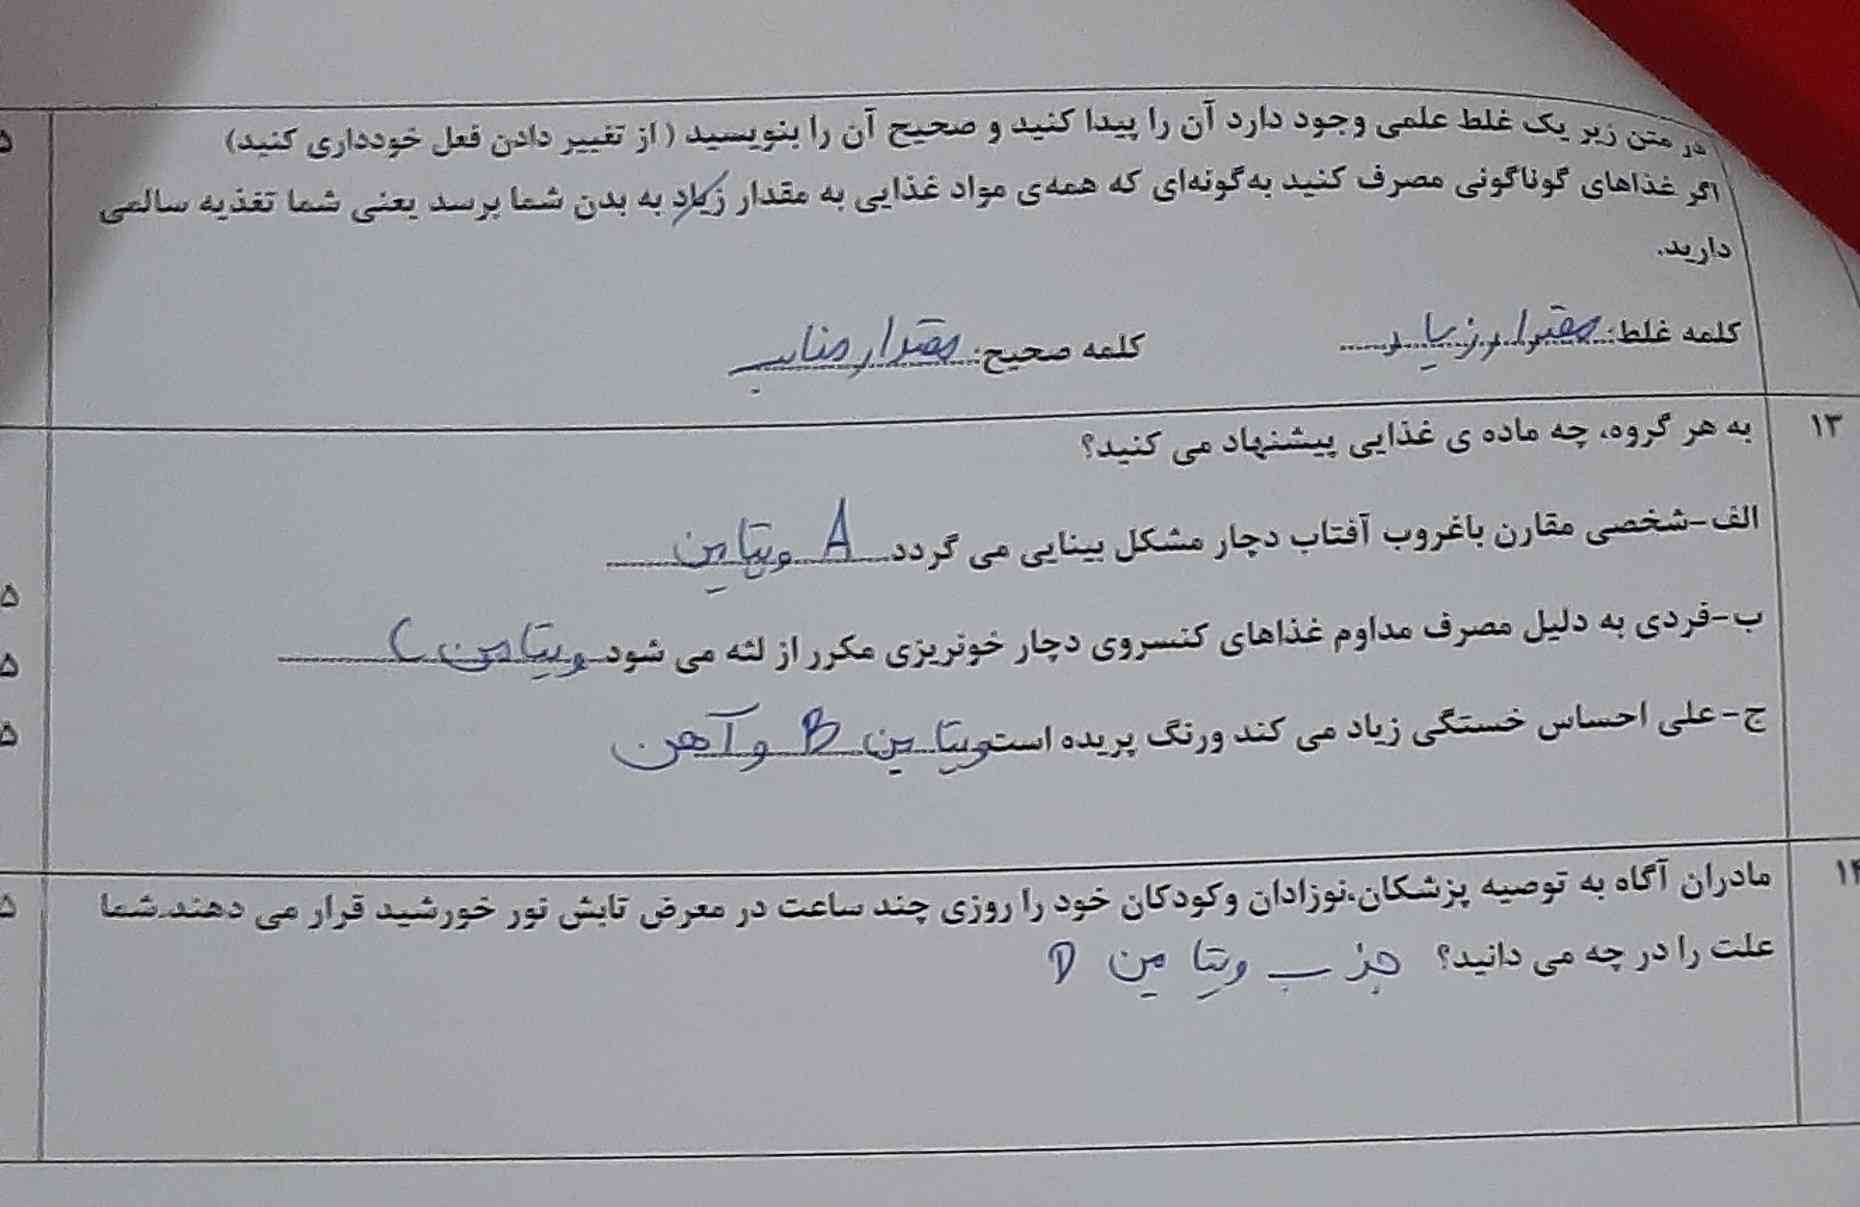 در متن زیر یک غلط علمی وجود دارد آن را پیدا کنید و صحیح آن را بنویسید (از تغییر دادن فعل خودداری کنید)
اگر غذاهای گوناگونی مصرف کنید به‌گونه‌ای که همه‌ی مواد غذایی به مقدار زیاد به بدن شما برسد یعنی شما تغذیه سالمی
دارید.
کلمه غلط: مقدار زیاد کلمه صحیح: مقدار مناسب
۱۳ به هر گروه، چه ماده ی غذایی پیشنهاد می کنید؟
الف-شخصی مقارن باغروب آفتاب دچار مشکل بینایی می گردد ویتامین A
۵
ب-فردی به دلیل مصرف مداوم غذاهای کنسروی دچار خونریزی مکرر از لثه می شود ویتامین C
۵
ج-علی احساس خستگی زیاد می کند ورنگ پریده است ویتامین B و آهن
۵
۱۴ مادران آگاه به توصیه پزشکان،نوزادان وکودکان خود را روزی چند ساعت در معرض تابش نور خورشید قرار می دهند.شما
۵
علت را در چه می دانید؟ جذب ویتامین D